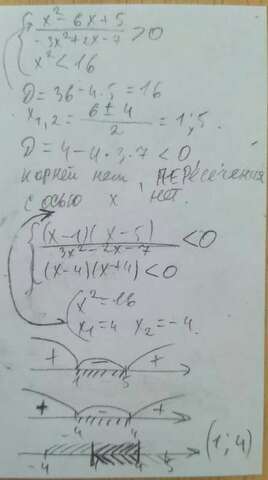 x² - 6x + 5
-3x² + 2x - 7 > 0
x² < 16
D = 36 - 4·5 = 16
x1,2 = (6 ± 4)/2 = 1; 5.
D = 4 - 4·3·7 < 0,
корней нет, пересечения
с осью x нет.
(x-1)(x-5)
3x² - 2x - 7 < 0
(x-4)(x+4) < 0
x² = 16
x1 = 4 x2 = -4.
+ - +
1 5
+ - +
-4 4
-4 1 4 5 (1; 4)